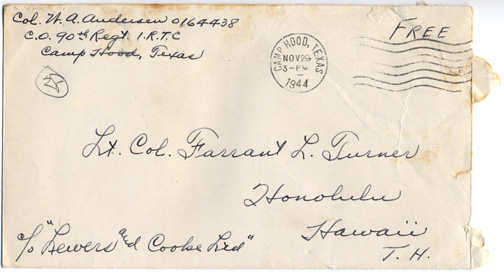 Col. W. A. Anderson 0164438
C.O. 90th Regt. I.R.T.C
Camp Hood, Texas
FREE
CAMP HOOD, TEXAS
NOV 29
3-PM
1944
25
Lt. Col. Farrant L. Turner
Honolulu
Hawaii
T. H.
c/o "Lewers and Cooke Ltd"